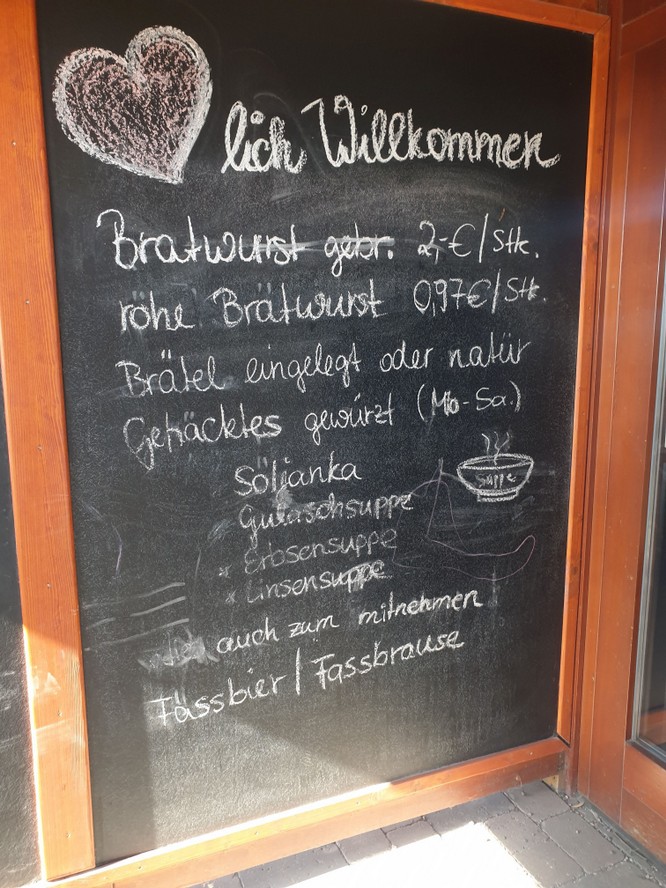 lich Willkommen
Bratwurst gebr. 2,-€/Stk.
röhe Brätwurst 0,97€/Stk.
Brätel eingelegt oder natür
Gehäcktes gewürzt (Mo-Sa.)
Söljanka
Suppe
Gulaschsuppe
* Erbsensuppe
* Linsensuppe
auch zum mitnehmen
Fässbier/Fassbrause